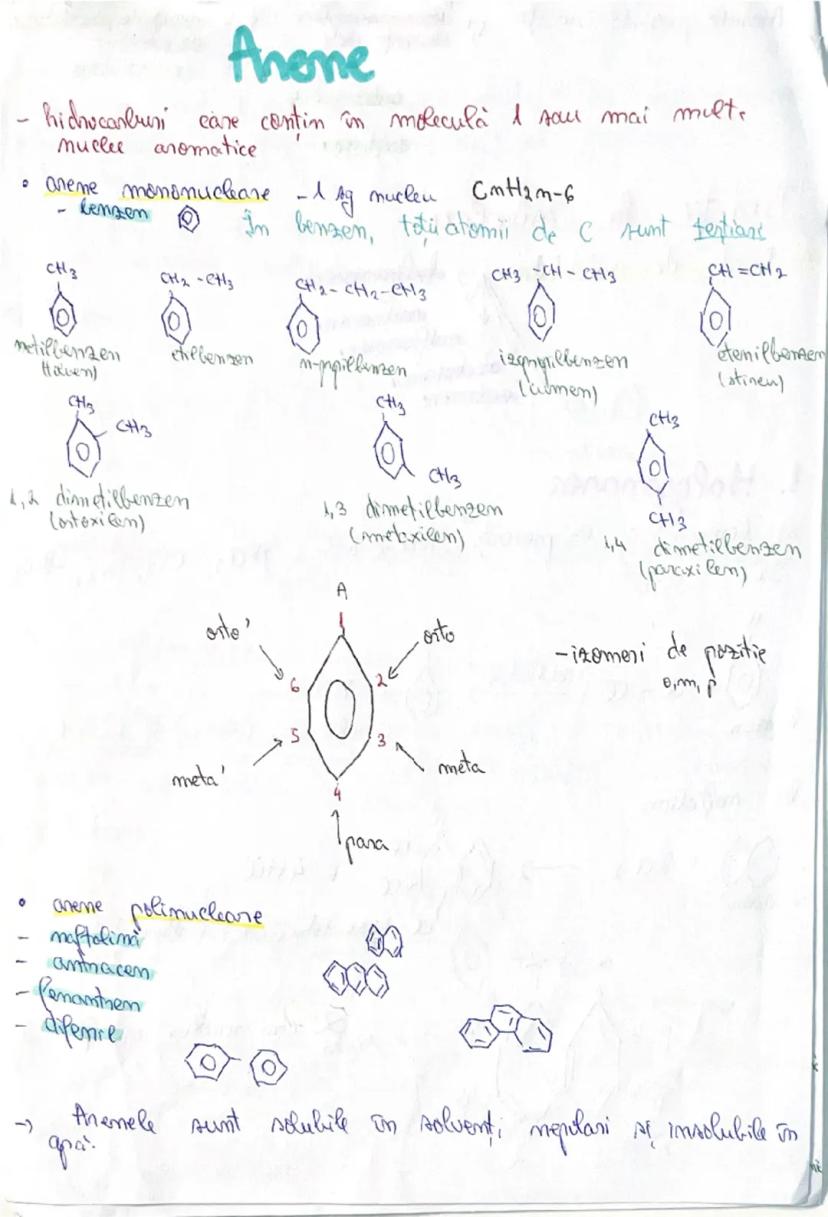 Arene
- hidrocarburi care conțin în moleculă 1 sau mai multe
nuclee aromatice
• arene mononucleare - 1 sg nucleu CnH2n-6
- benzen
În benzen, toți atomii de C sunt terțiari
CH3 CH2-CH3 CH2-CH2-CH3 CH3-CH-CH3 CH=CH2
metilbenzen etilbenzen n-propilbenzen izopropilbenzen etenilbenzen
(toluen) (cumen) (stiren)
CH3 CH3 CH3
CH3 CH3 CH3
1,2 dimetilbenzen 1,3 dimetilbenzen 1,4 dimetilbenzen
(ortoxilen) (metaxilen) (paraxilen)
A
1
orto' orto
6 2
- izomeri de poziție
o, m, p
5 3
meta' meta
4
para
• arene polinucleare
- naftalină
- antracen
- fenantren
- difenil
→ Arenele sunt solubile în solvenți nepolari și insolubile în
apă.